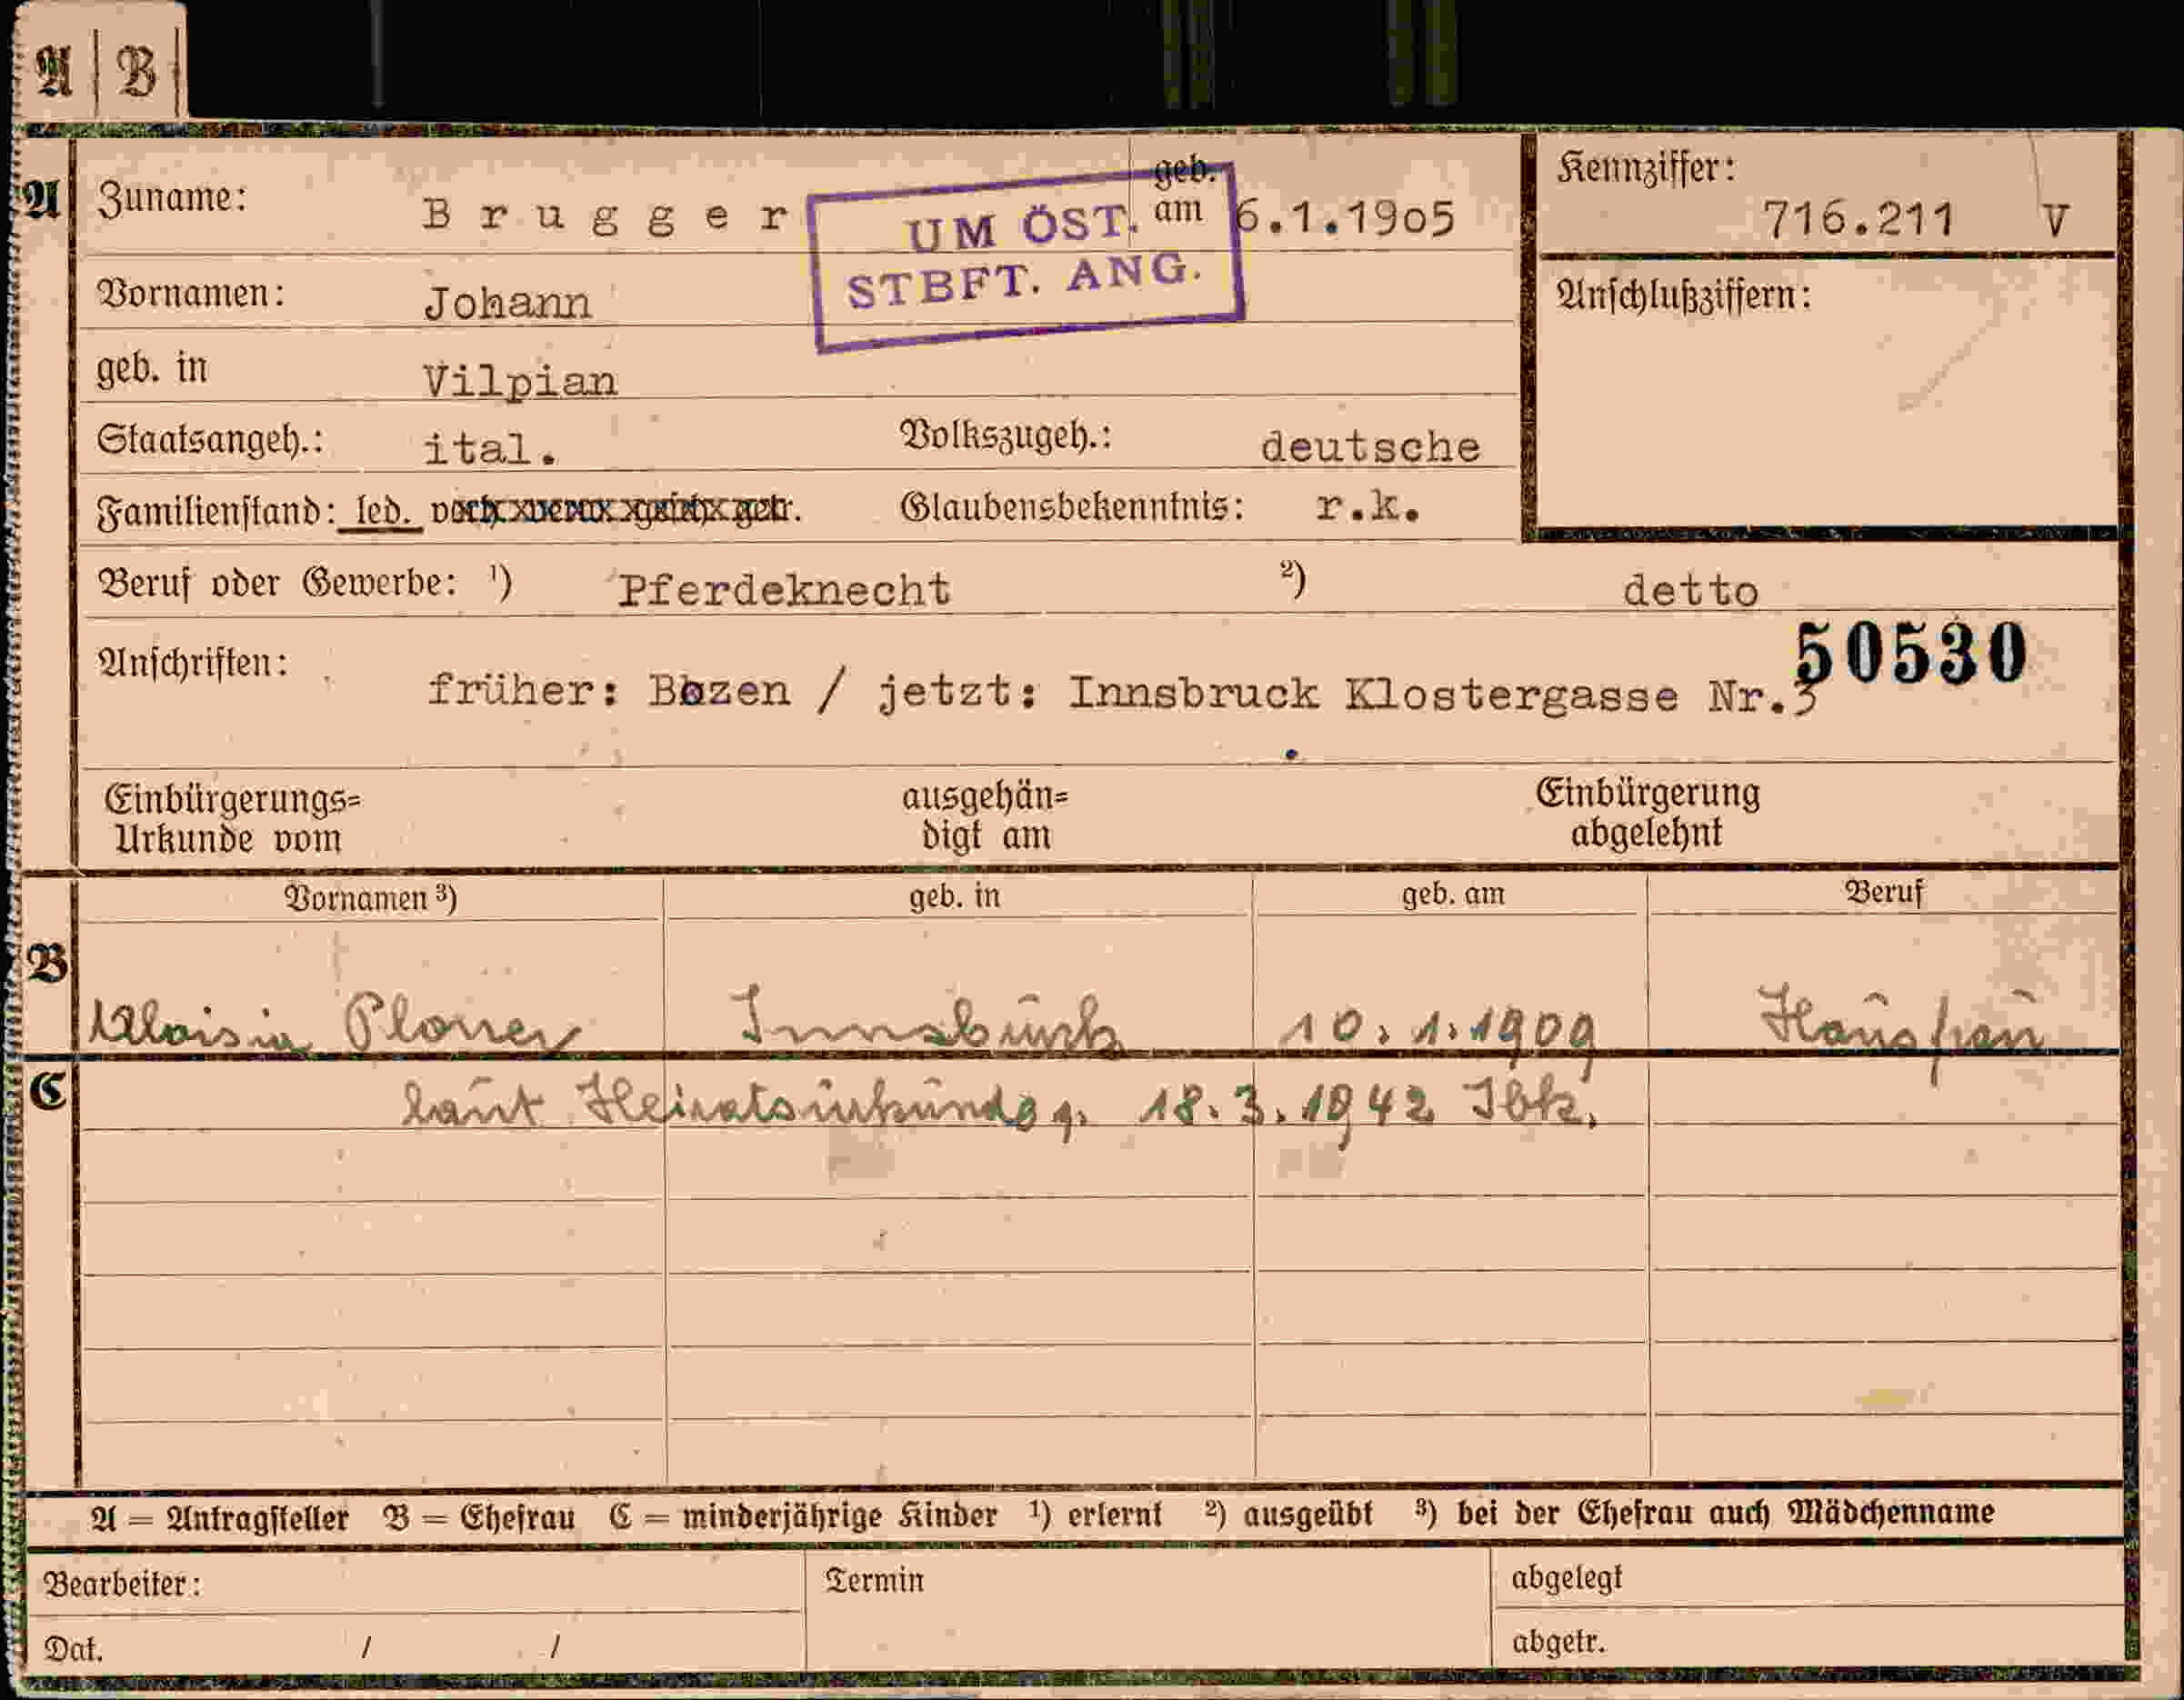 A | B
A Zuname: Brugger geb. am 6.1.1905 Kennziffer: 716.211 V
UM ÖST. STBFT. ANG.
Vornamen: Johann Anschlußziffern:
geb. in Vilpian
Staatsangeh.: ital. Volkszugeh.: deutsche
Familienstand: led. verh. verw. gesch. getr. Glaubensbekenntnis: r.k.
Beruf oder Gewerbe: ¹) Pferdeknecht ²) detto
50530
Anschriften: früher: Bozen / jetzt: Innsbruck Klostergasse Nr.3
Einbürgerungs= ausgehän= Einbürgerung
Urkunde vom digt am abgelehnt
Vornamen ³) geb. in geb. am Beruf
B Aloisia Ploner Innsbruck 10.1.1909 Hausfrau
C laut Heiratsurkunde g. 18.3.1942 Ibk.
A = Antragsteller B = Ehefrau C = minderjährige Kinder ¹) erlernt ²) ausgeübt ³) bei der Ehefrau auch Mädchenname
Bearbeiter: Termin abgelegt
Dat. / / abgetr.